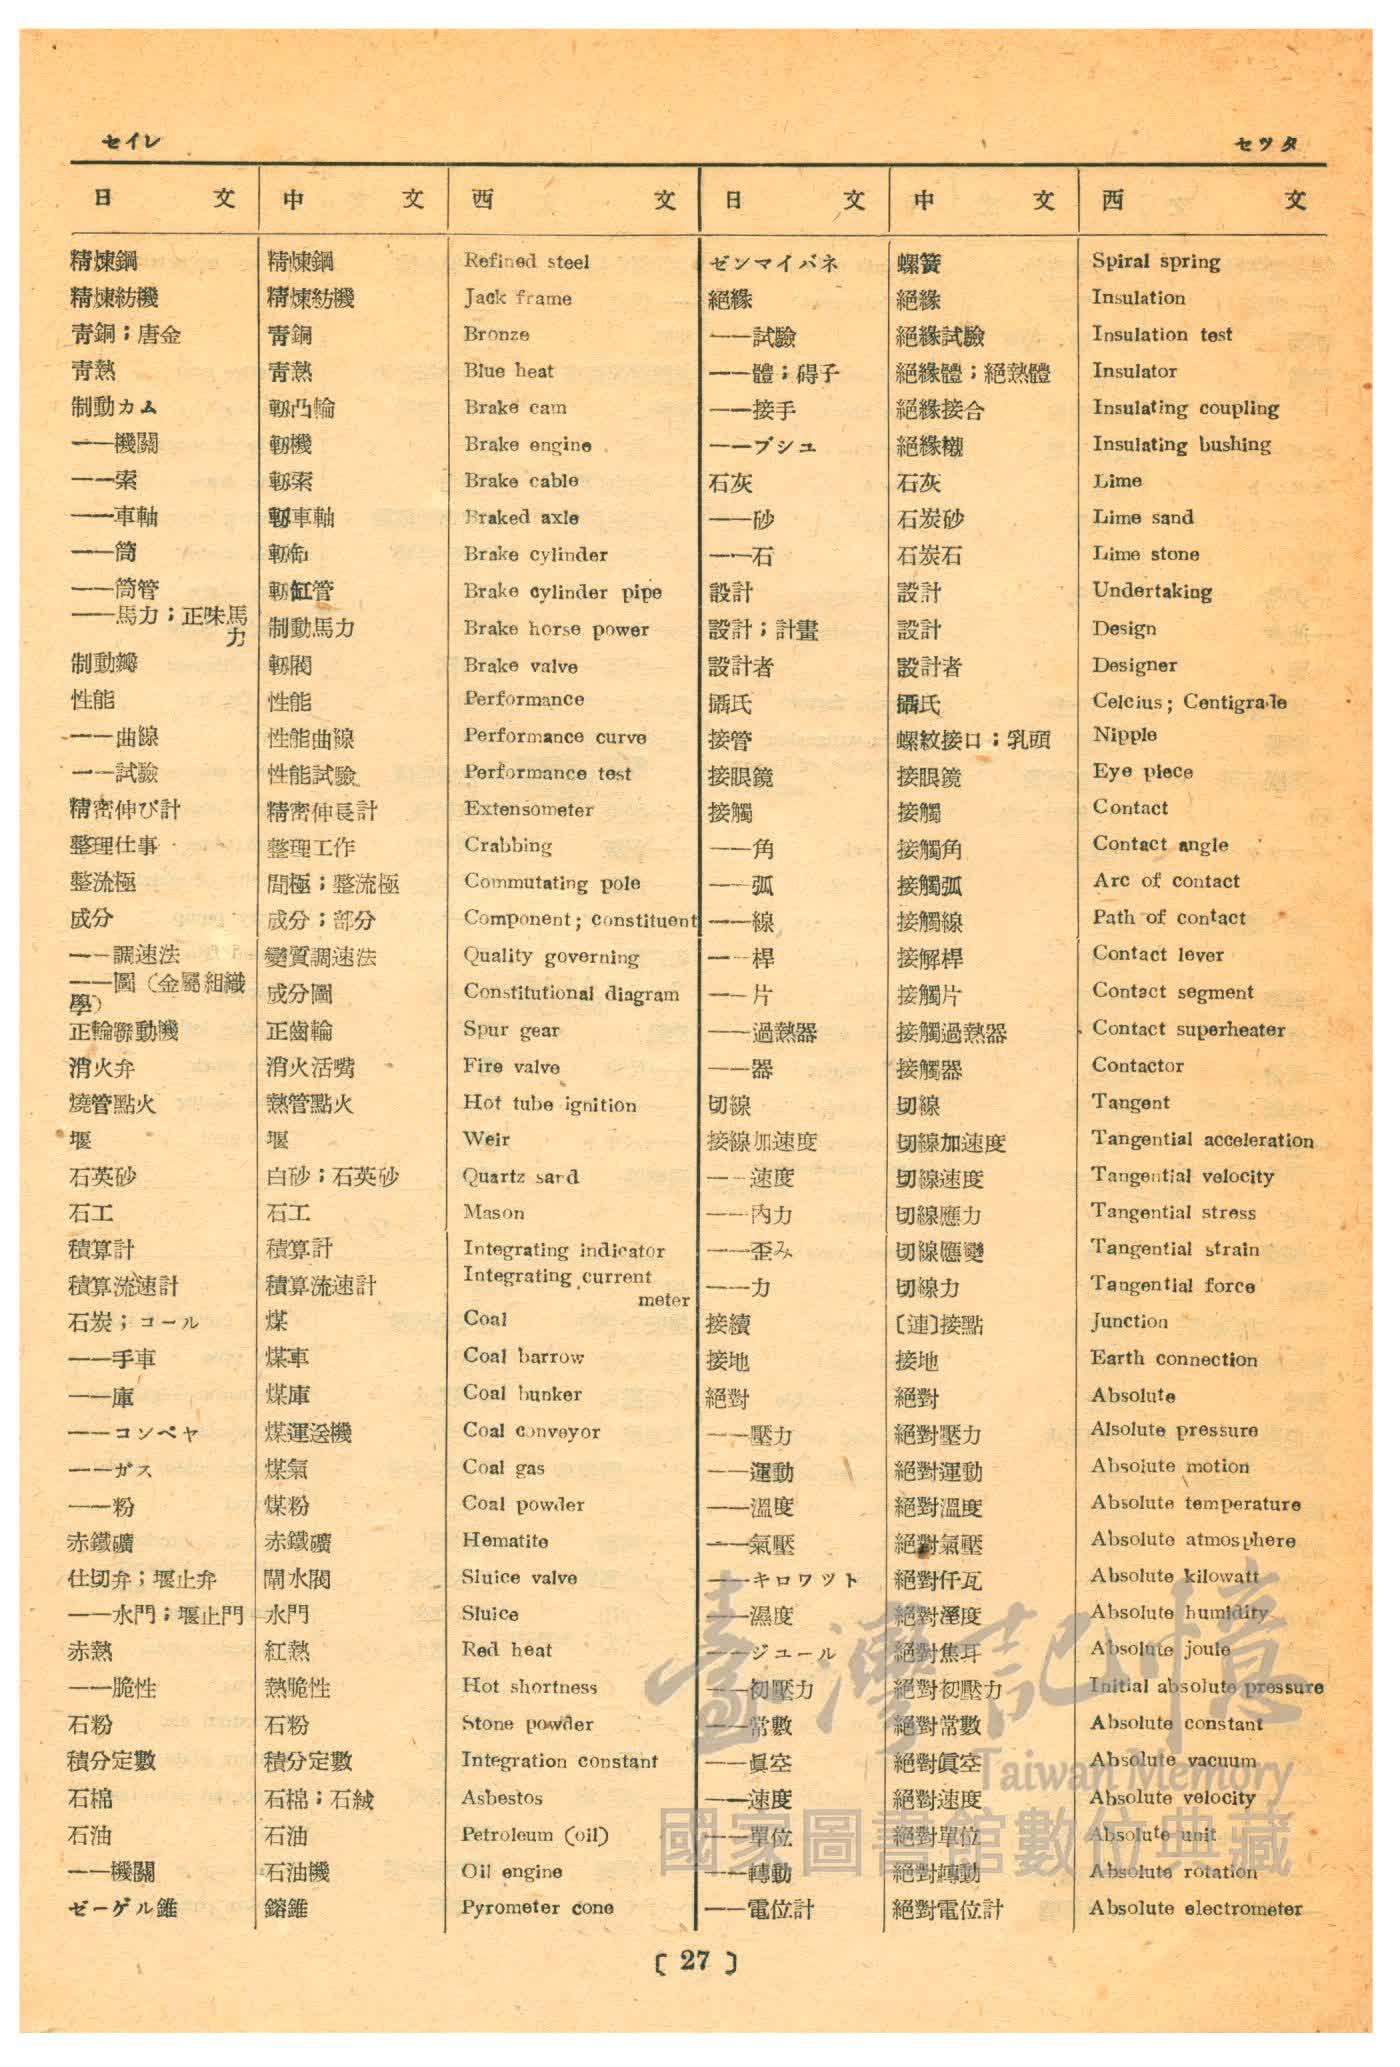 セイレ セツタ
日文 中文 西文 日文 中文 西文
精煉鋼 精煉鋼 Refined steel
精煉紡機 精煉紡機 Jack frame
青銅；唐金 青銅 Bronze
青熱 青熱 Blue heat
制動カム 軔凸輪 Brake cam
——機關 軔機 Brake engine
——索 軔索 Brake cable
——車軸 軔車軸 Braked axle
——筒 軔缸 Brake cylinder
——筒管 軔缸管 Brake cylinder pipe
——馬力；正味馬力 制動馬力 Brake horse power
制動瓣 軔閥 Brake valve
性能 性能 Performance
——曲線 性能曲線 Performance curve
——試驗 性能試驗 Performance test
精密伸び計 精密伸長計 Extensometer
整理仕事 整理工作 Crabbing
整流極 間極；整流極 Commutating pole
成分 成分；部分 Component; constituent
——調速法 變質調速法 Quality governing
——圖（金屬組織學） 成分圖 Constitutional diagram
正輪聯動機 正齒輪 Spur gear
消火弁 消火活嘴 Fire valve
燒管點火 熱管點火 Hot tube ignition
堰 堰 Weir
石英砂 白砂；石英砂 Quartz sard
石工 石工 Mason
積算計 積算計 Integrating indicator
積算流速計 積算流速計 Integrating current meter
石炭；コール 煤 Coal
——手車 煤車 Coal barrow
——庫 煤庫 Coal bunker
——コンベヤ 煤運送機 Coal conveyor
——ガス 煤氣 Coal gas
——粉 煤粉 Coal powder
赤鐵礦 赤鐵礦 Hematite
仕切弁；堰止弁 閘水閥 Sluice valve
——水門；堰止門 水門 Sluice
赤熱 紅熱 Red heat
——脆性 熱脆性 Hot shortness
石粉 石粉 Stone powder
積分定數 積分定數 Integration constant
石棉 石棉；石絨 Asbestos
石油 石油 Petroleum (oil)
——機關 石油機 Oil engine
ゼーゲル錐 鎔錐 Pyrometer cone
ゼンマイバネ 螺簧 Spiral spring
絕緣 絕緣 Insulation
——試驗 絕緣試驗 Insulation test
——體；碍子 絕緣體；絕熱體 Insulator
——接手 絕緣接合 Insulating coupling
——ブシユ 絕緣櫬 Insulating bushing
石灰 石灰 Lime
——砂 石炭砂 Lime sand
——石 石炭石 Lime stone
設計 設計 Undertaking
設計；計畫 設計 Design
設計者 設計者 Designer
攝氏 攝氏 Celcius; Centigrade
接管 螺紋接口；乳頭 Nipple
接眼鏡 接眼鏡 Eye piece
接觸 接觸 Contact
——角 接觸角 Contact angle
——弧 接觸弧 Arc of contact
——線 接觸線 Path of contact
——桿 接解桿 Contact lever
——片 接觸片 Contact segment
——過熱器 接觸過熱器 Contact superheater
——器 接觸器 Contactor
切線 切線 Tangent
接線加速度 切線加速度 Tangential acceleration
——速度 切線速度 Tangential velocity
——內力 切線應力 Tangential stress
——歪み 切線應變 Tangential strain
——力 切線力 Tangential force
接續 〔連〕接點 Junction
接地 接地 Earth connection
絕對 絕對 Absolute
——壓力 絕對壓力 Alsolute pressure
——運動 絕對運動 Absolute motion
——溫度 絕對溫度 Absolute temperature
——氣壓 絕對氣壓 Absolute atmosphere
——キロワツト 絕對仟瓦 Absolute kilowatt
——濕度 絕對溼度 Absolute humidity
——ジユール 絕對焦耳 Absolute joule
——初壓力 絕對初壓力 Initial absolute pressure
——常數 絕對常數 Absolute constant
——眞空 絕對眞空 Absolute vacuum
——速度 絕對速度 Absolute velocity
——單位 絕對單位 Absolute unit
——轉動 絕對轉動 Absolute rotation
——電位計 絕對電位計 Absolute electrometer
〔 27 〕
臺灣記憶
Taiwan Memory
國家圖書館數位典藏